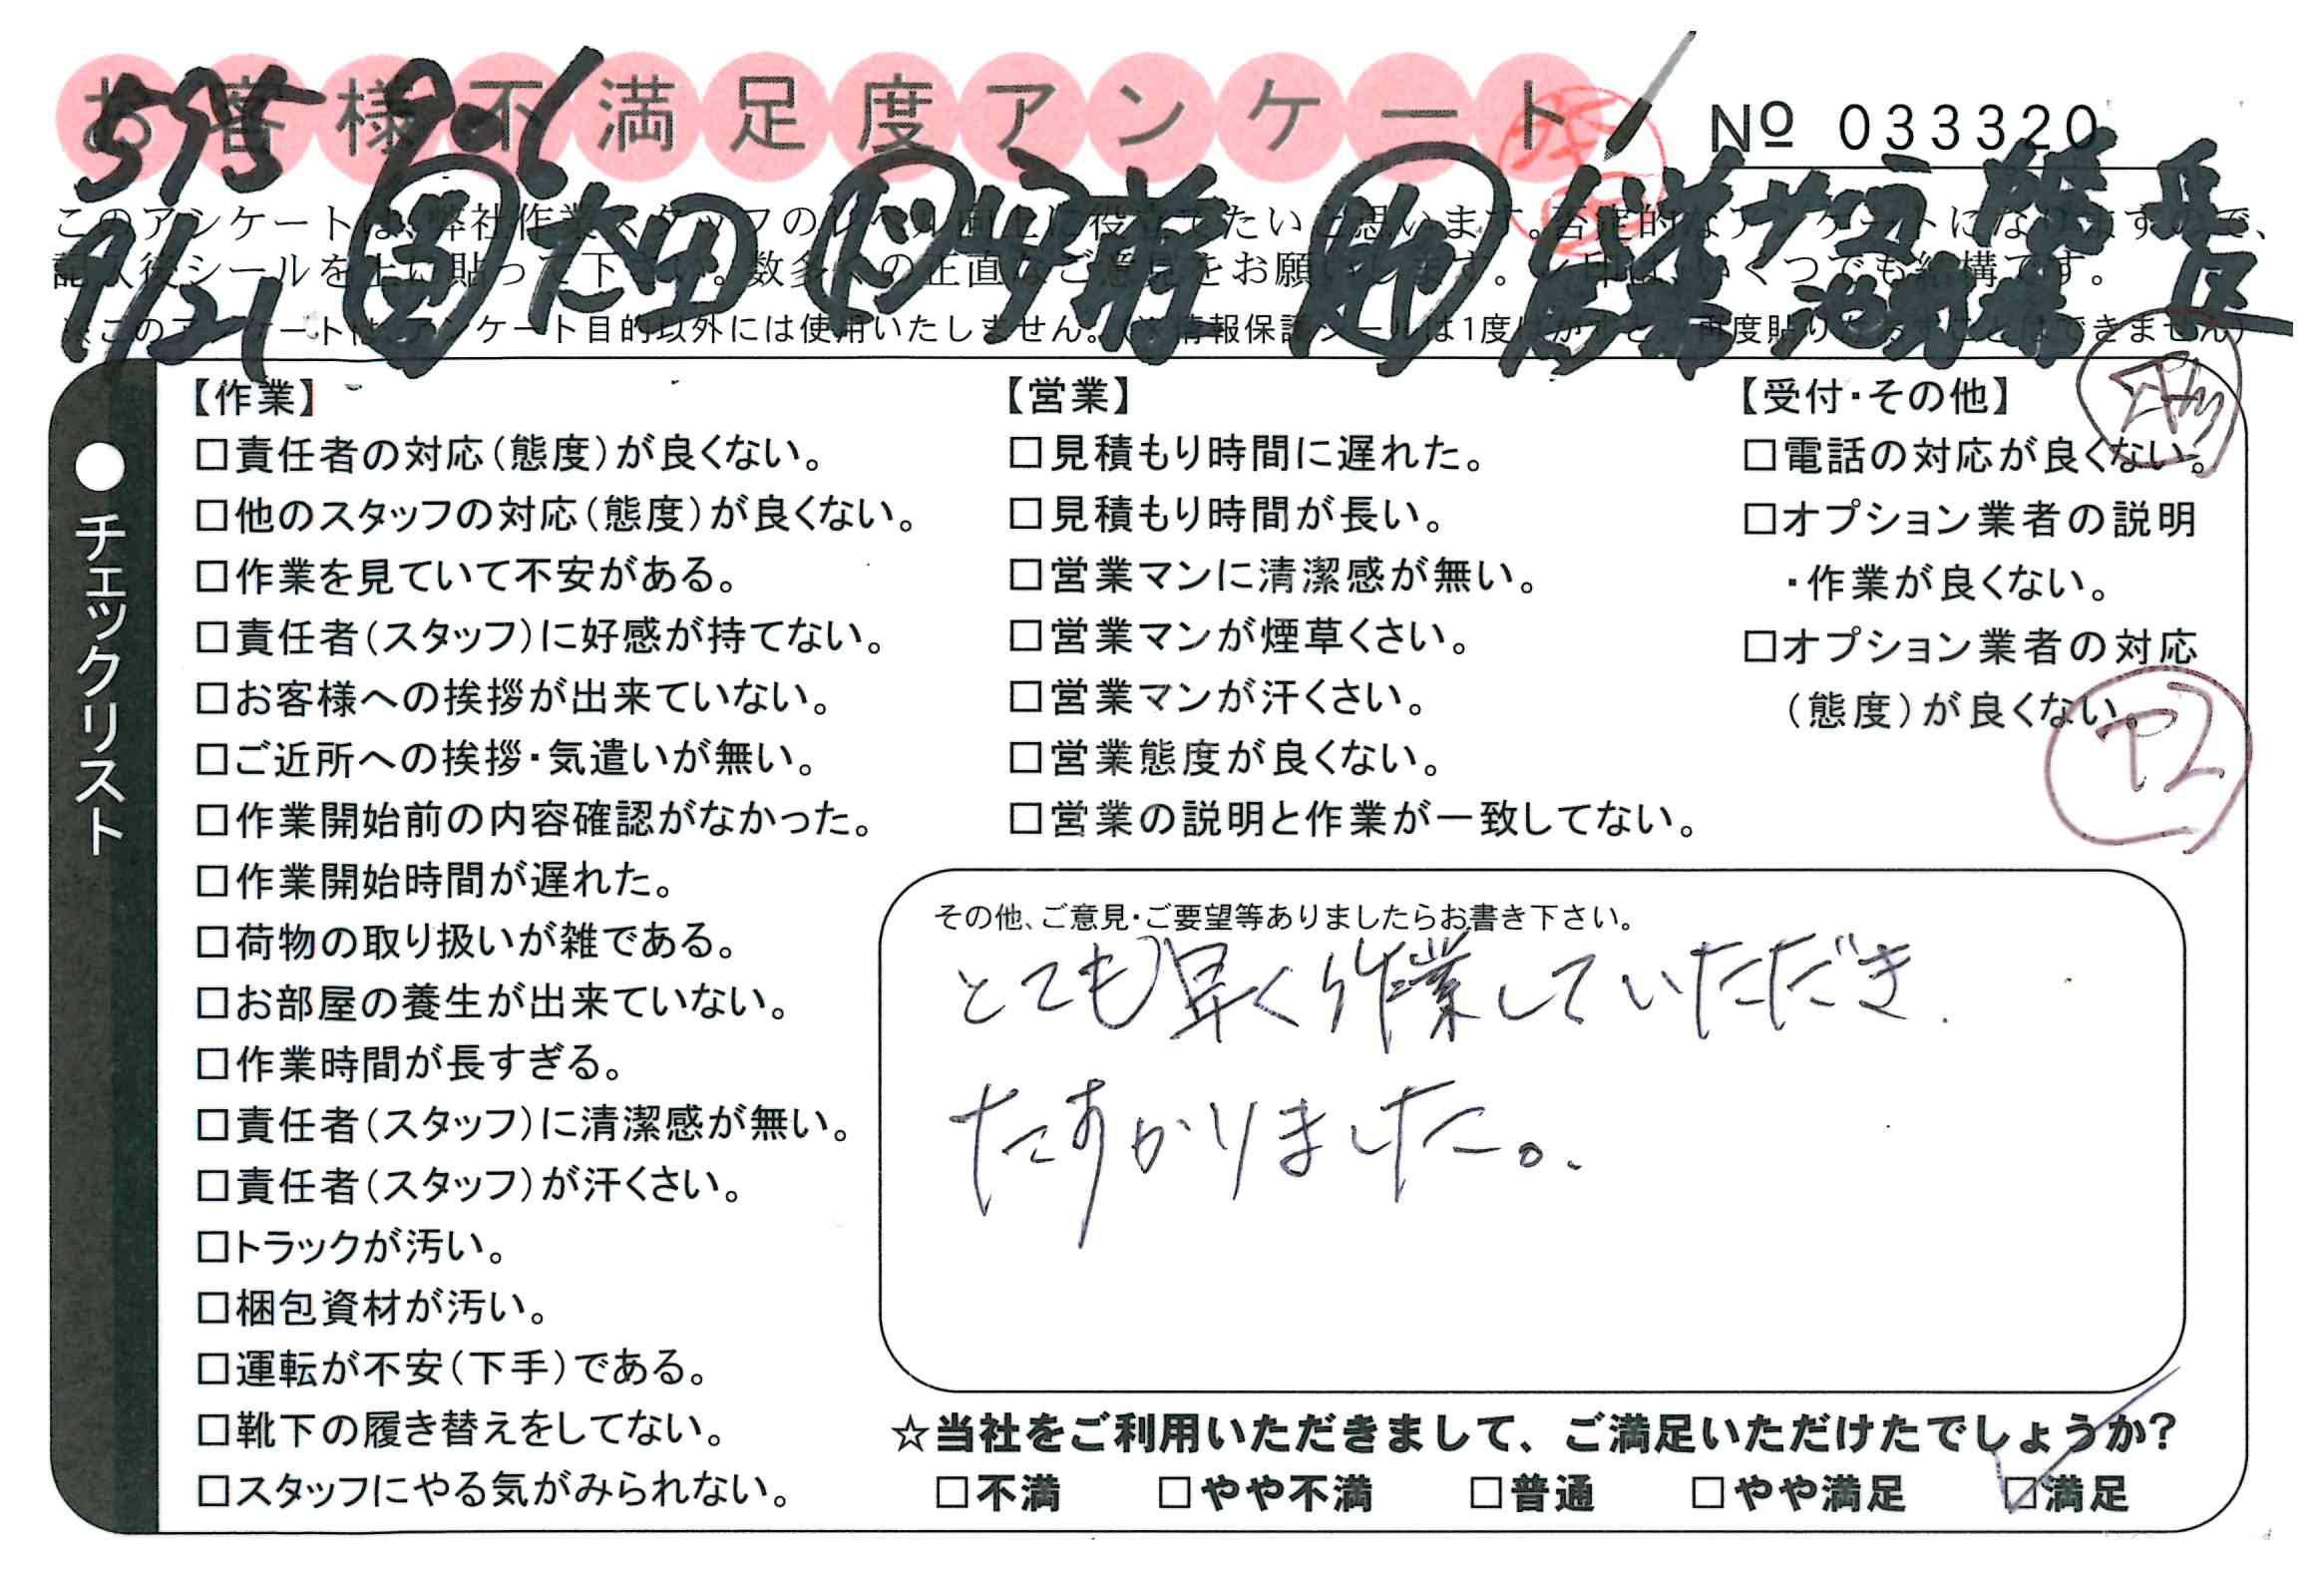 お客様不満足度アンケート
№ 033320
595 9-6
このアンケートは、弊社作業スタッフのレベル向上に役立てたいと思います。否定的なアンケートになりますので、
記入後シールを上に貼って下さい。数多くの正直なご意見をお願いします。
9/21 太田
●チェックリスト
【作業】
□責任者の対応(態度)が良くない。
□他のスタッフの対応(態度)が良くない。
□作業を見ていて不安がある。
□責任者(スタッフ)に好感が持てない。
□お客様への挨拶が出来ていない。
□ご近所への挨拶・気遣いが無い。
□作業開始前の内容確認がなかった。
□作業開始時間が遅れた。
□荷物の取り扱いが雑である。
□お部屋の養生が出来ていない。
□作業時間が長すぎる。
□責任者(スタッフ)に清潔感が無い。
□責任者(スタッフ)が汗くさい。
□トラックが汚い。
□梱包資材が汚い。
□運転が不安(下手)である。
□靴下の履き替えをしてない。
□スタッフにやる気がみられない。
【営業】
□見積もり時間に遅れた。
□見積もり時間が長い。
□営業マンに清潔感が無い。
□営業マンが煙草くさい。
□営業マンが汗くさい。
□営業態度が良くない。
□営業の説明と作業が一致してない。
【受付・その他】
□電話の対応が良くない。
□オプション業者の説明
・作業が良くない。
□オプション業者の対応
(態度)が良くない。
その他、ご意見・ご要望等ありましたらお書き下さい。
とても早く作業していただき
たすかりました。
☆当社をご利用いただきまして、ご満足いただけたでしょうか?
□不満 □やや不満 □普通 □やや満足 ☑満足